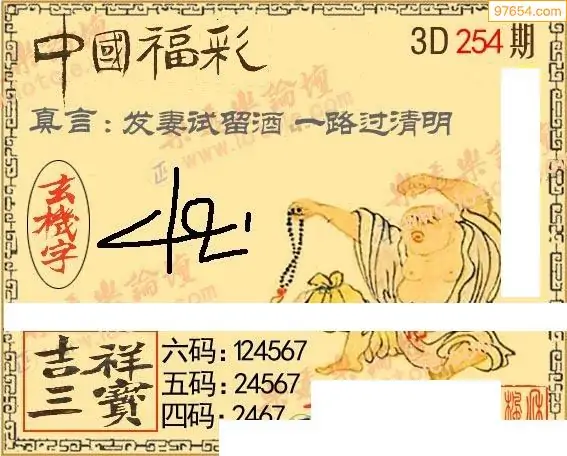 97654.com
中國福彩
3D 254 期
真言:发妻试留酒 一路过清明
玄機字
吉祥三寶
六码:124567
五码:24567
四码:2467